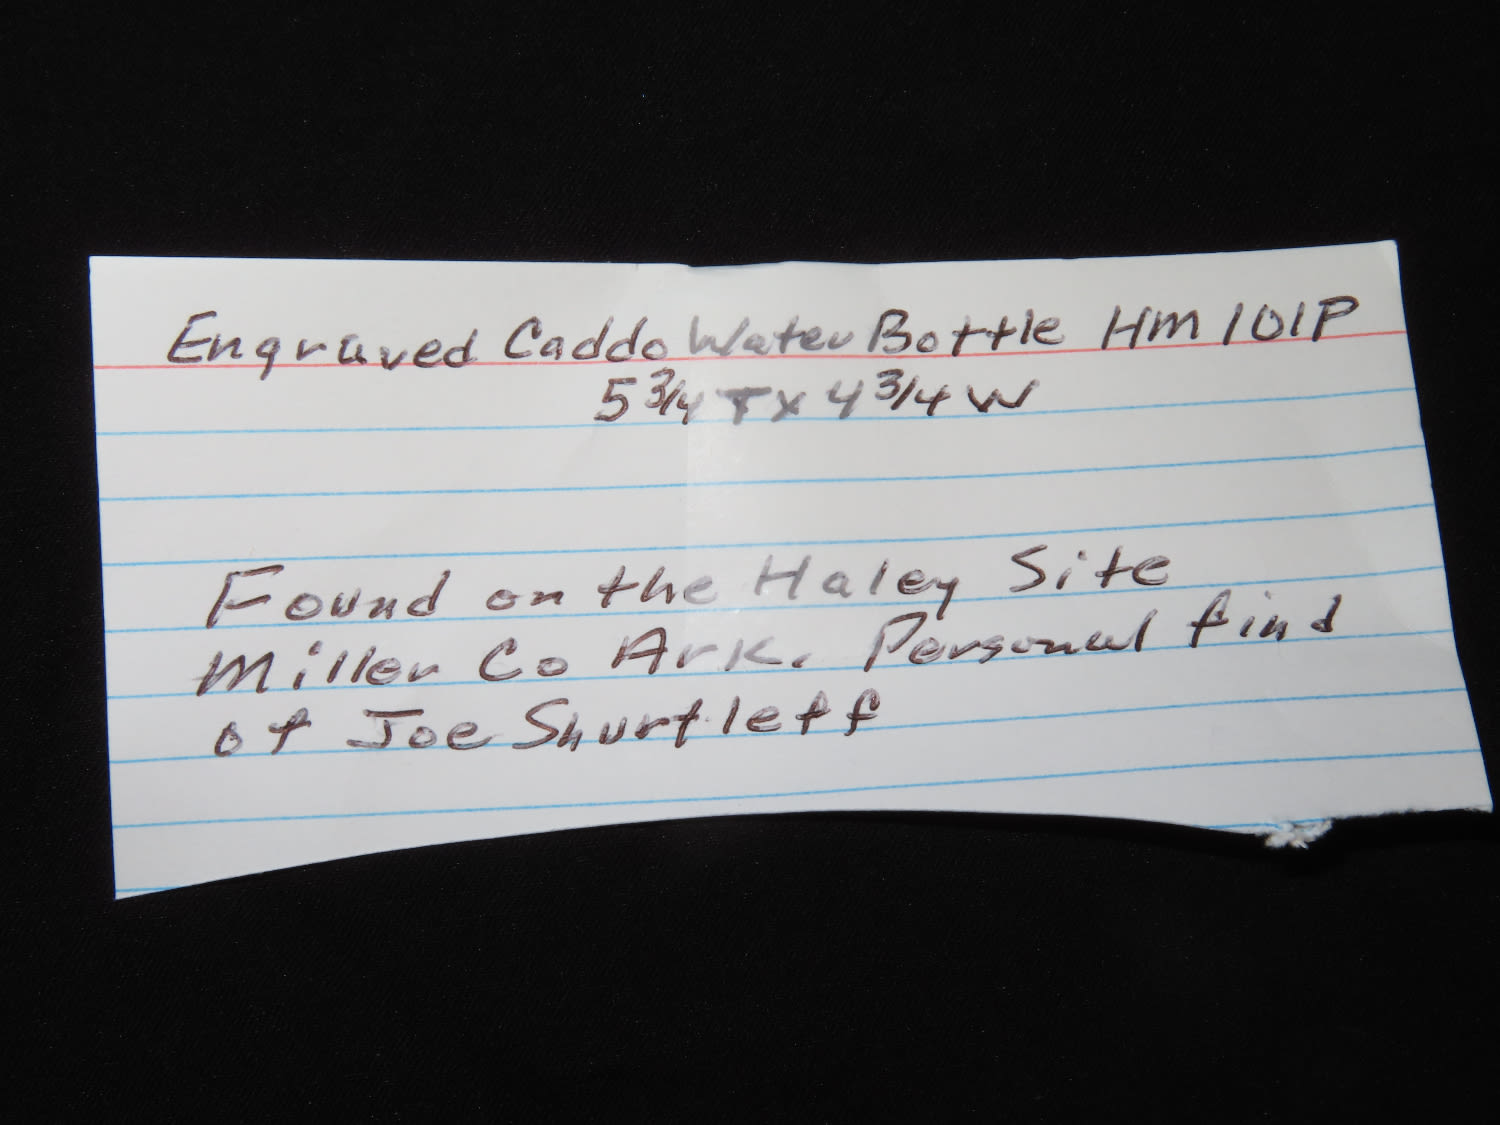 Engraved Caddo Water Bottle HM 101P
5 3/4 T x 4 3/4 W
Found on the Haley Site
Miller Co Ark. Personal find
of Joe Shurtleff